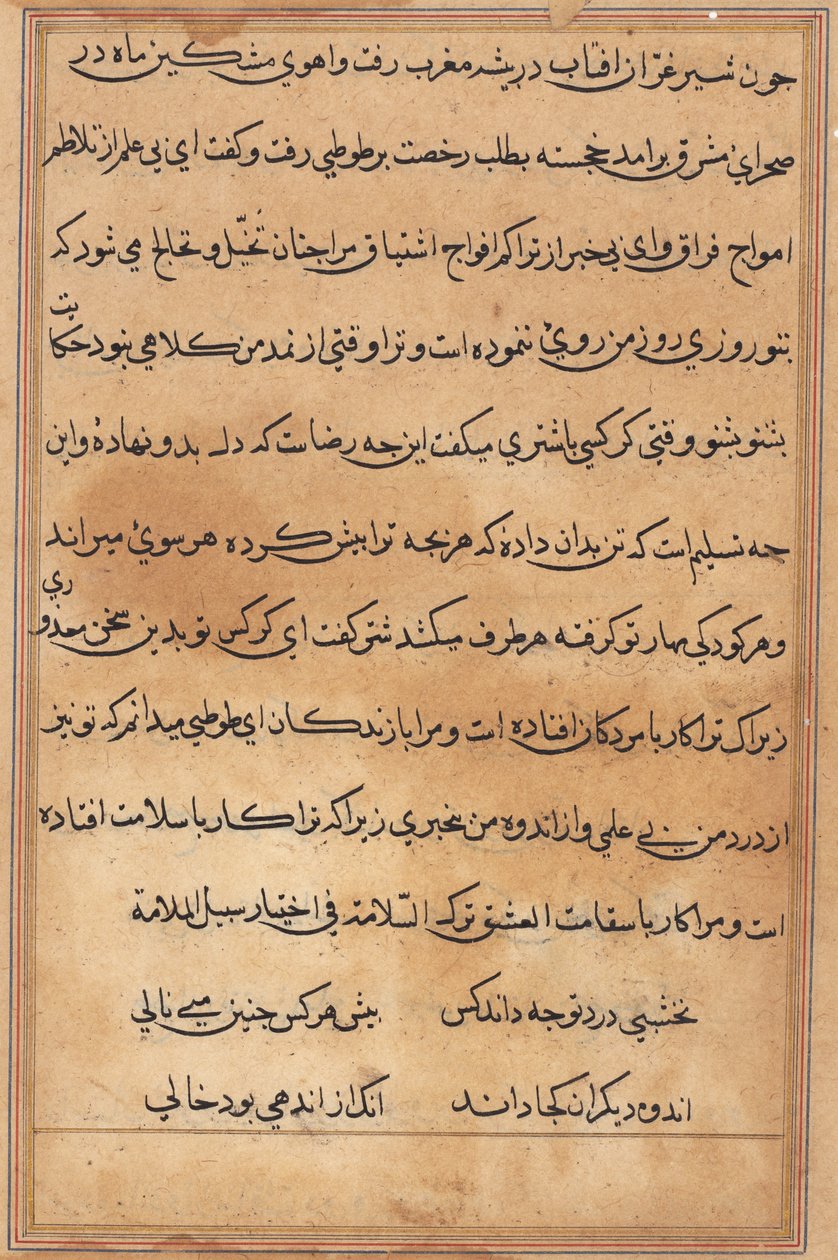 جون شیر غرّان افتاب در بیشه مغرب رفت و اهوي مشكين ماه در
صحرائ مشرق برامد خجسته بطلب رخصت بر طوطي رفت و كفت اي بي علم از تلاطم
امواج فراق واي بي خبر از تراكم افواج اشتياق مرا جنان تُخيّل و تخالج مي شود كه
تنور روزي روز من روئ ننموده است و ترا وقتي از نمد من كلاهي بنود حكايت
بشنو بشنو وقتي كركسي با شتري ميكفت اين جه رضاست كه دل بدو نهادهٔ واين
جه تسليم است كه تن بدان دادهٔ كه هر بجه ترا بيش كرده هر سوئ ميراند
و هر كودكي مهار تو كرفته هر طرف ميكشد شتر كفت اي كركس تو بدين سخن معذوري
زيراك ترا كار با مردكان افتاده است و مرا با زندكان اي طوطي ميدانم كه تو نيز
از درد من بي علمي و از اندوه من بيخبري زيرا كه ترا كار با سلامت افتاده
است و مرا كار با سقامت العشق ترك السّلامة في اختيار سبيل الملامة
نخشبي درد تو جه داند كس بيش هر كس جنين ميے نالي
اندوه ديكران كجا داند انك از اندهي بود خالي